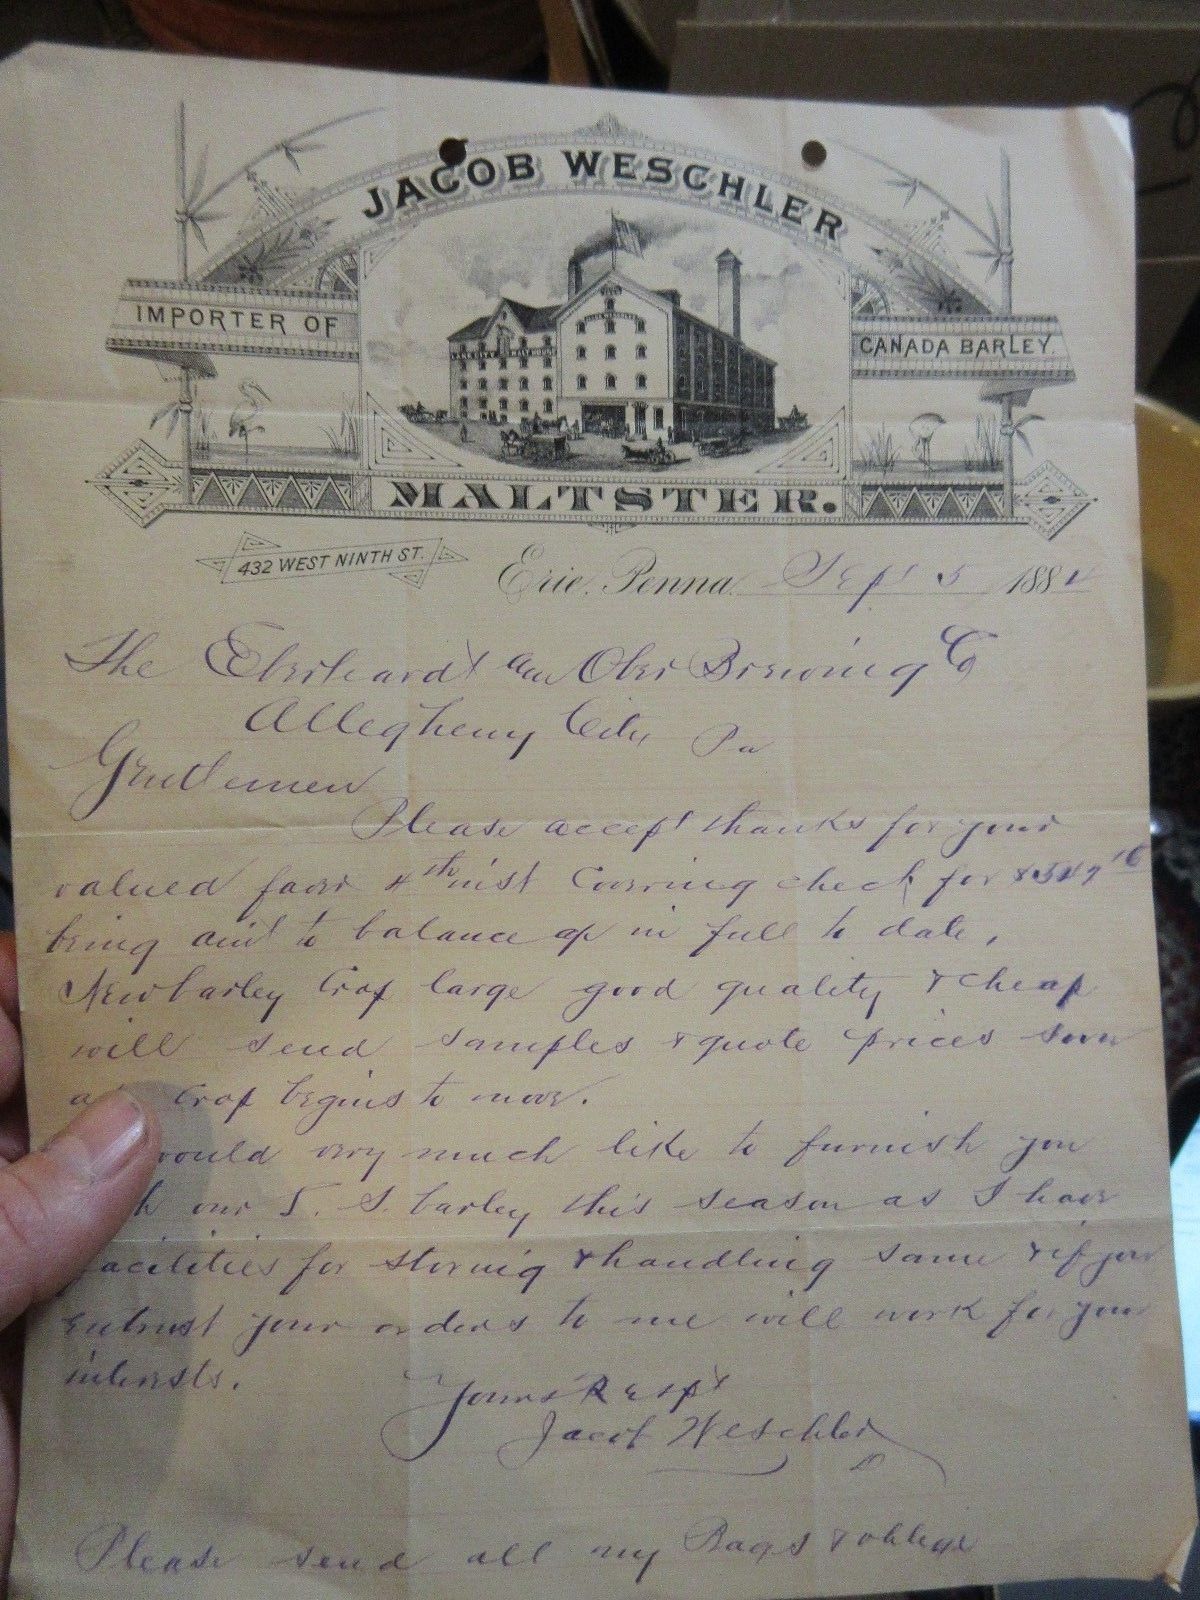 JACOB WESCHLER
IMPORTER OF
CANADA BARLEY.
MALTSTER.
432 WEST NINTH ST.
Erie, Penna. Sept 5 188
The Eberhardt Ober Brewing Co
Allegheny City Pa
Gentlemen
Please accept thanks for your
valued favor 4th inst Covering check for
being amt to balance up in full to date,
New barley Crop large good quality & cheap
will send samples & quote prices soon
as Crop begins to move.
would very much like to furnish you
our barley this season as I have
facilities for storing & handling same & if you
entrust your orders to me will work for your
interests.
Yours Respt
Jacob Weschler
Please send all my Bags & oblige